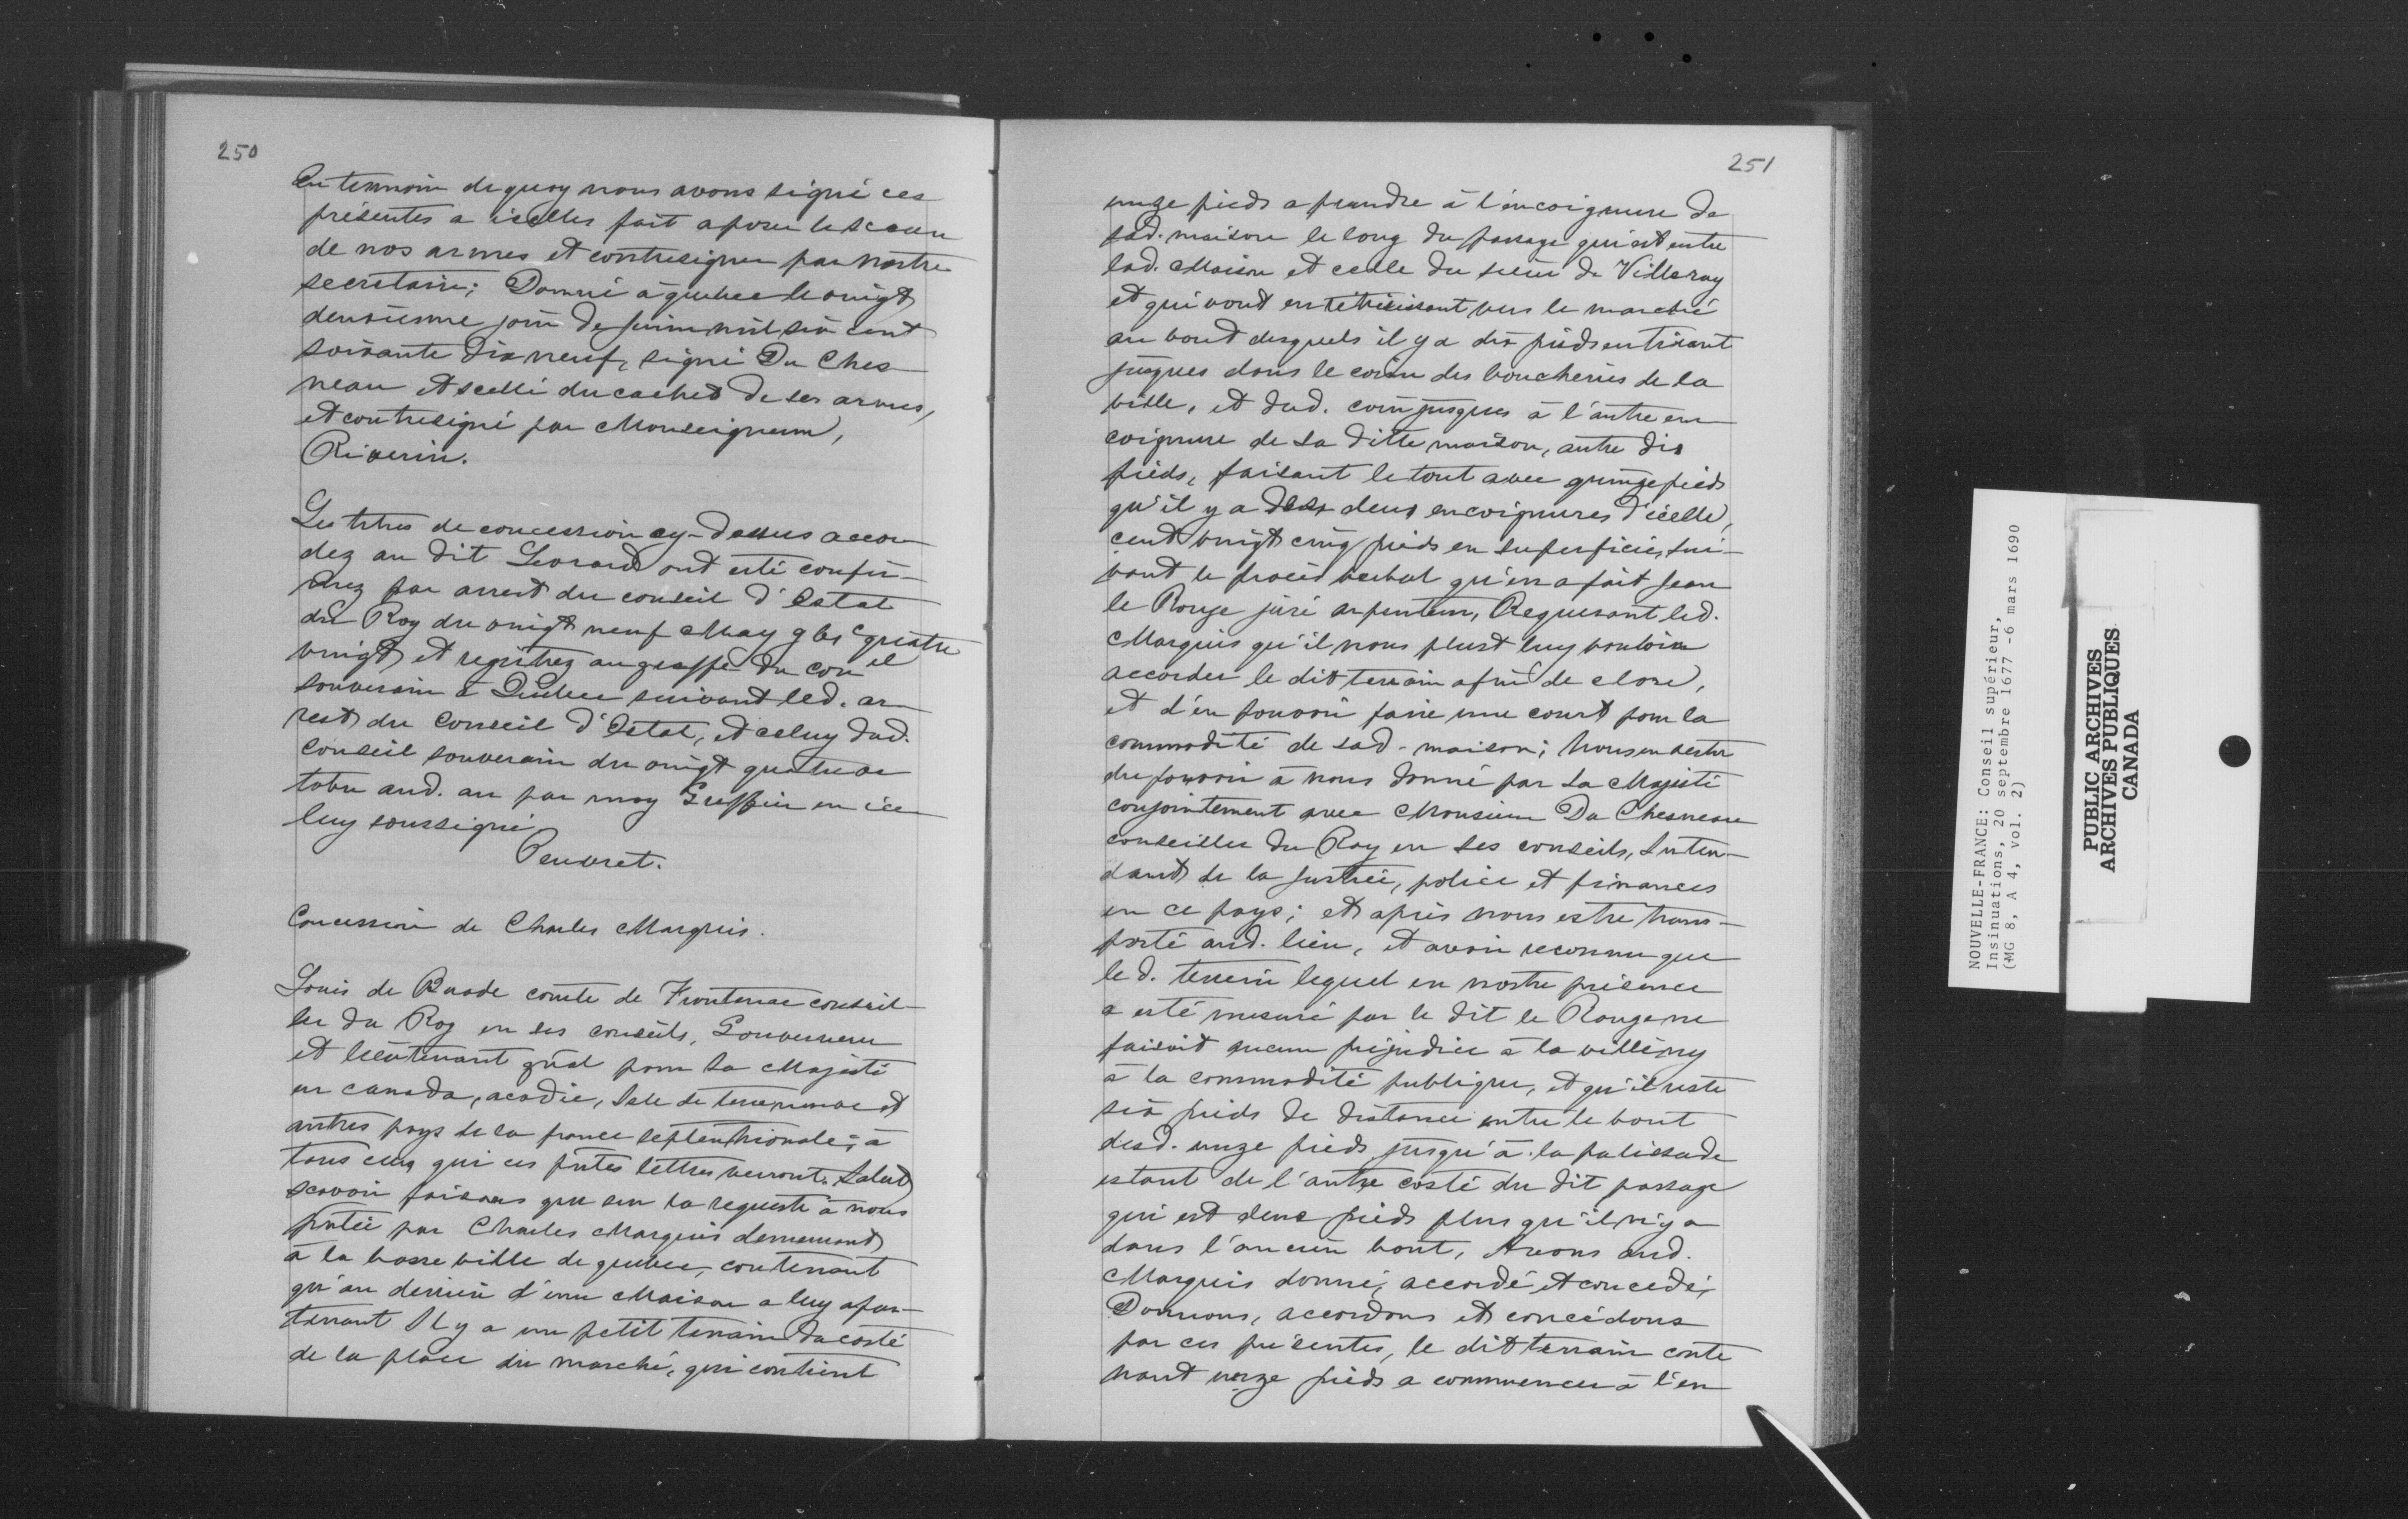 250
En temoin de quoy nous avons signé ces
présentes a icelles fait aposer le sceau
de nos armes et contresigner par nostre
secretaire; Donné à quebec le vingt
deuxiesme jour de juin mil six cent
soixante dix neuf, signé Du Ches
neau et scellé du cachet de ses armes,
et contresigné par Monseigneur,
Riverin.
Les titres de concession cy-dessus accor
dez au dit Levrard ont esté confir-
mez par arrest du conseil d'Estat
du Roy du vingt neuf May gbic quatre
vingt et registrez au greffe du con el
souverain à Quebec suivant led. ar
rest du Conseil d'Estat, et celuy dud.
conseil souverain du vingt quatre oc
tobre aud. an par moy Greffier en ice
luy soussigné
Peuvret.
Concession de Charles Marquis.
Louis de Buade comte de Frontenac conseil-
ler du Roy en ses conseils, Gouverneur
et lieutenant gnãl pour Sa Majesté
en canada, acadie, Isle de terreneuve et
autres pays de la france septentrionale; à
tous ceux qui ces pntes lettres verront. Salut
scavoir faisons que sur la requeste à nous
pntée par Charles Marquis demeurant
à la basse ville de quebec, contenant
qu'au derriere d'une Maison a luy apar-
tenant Il y a un petit terrain du costé
de la place du marché, qui contient
251
unze pieds a prendre à l'encoignure de
sad. maison le long du passage qui est entre
lad. Maison et celle du sieur de Villeray
et qui vont en rétrécissant vers le marché
au bout desquels il y a dix pieds en tirant
jusques dans le coin des boucheries de la
ville, et dud. coin jusques à l'autre en
coignure de sa ditte maison, autre dix
pieds, faisant le tout avec quinze pieds
qu'il y a des deux encoignures d'icelle,
cent vingt cinq pieds en superficie, sui-
vant le procès verbal qu'en a fait Jean
le Rouge juré arpenteur, Requerant led.
Marquis qu'il nous plust luy vouloir
accorder le dit terrain afin de clore,
et d'en pouvoir faire une court pour la
commodité de sad. maison; Nous en vertu
du pouvoir à nous donné par Sa Majesté
conjointement avec Monsieur Du Chesneau
conseiller du Roy en ses conseils, Inten-
dant de la Justice, police et finances
en ce pays; et après nous estre trans-
porté aud. lieu, et avoir reconnu que
le d. terrein lequel en nostre présence
a esté mesuré par le dit le Rouge ne
faisoit aucun préjudice à la ville, ny
à la commodité publique, et qu'il reste
six pieds de distance entre le bout
desd. unze pieds jusqu'à la palissade
estant de l'autre costé du dit passage
qui est deux pieds plus qu'il n'y a
dans l'ancien bout, Avons aud.
Marquis donné, accordé et concédé,
Donnons, accordons et concédons
par ces présentes, le dit terrain conte
nant unze pieds a commencer à l'en
NOUVELLE-FRANCE: Conseil supérieur,
Insinuations, 20 septembre 1677 -6 mars 1690
(MG 8, A 4, vol. 2)
PUBLIC ARCHIVES
ARCHIVES PUBLIQUES
CANADA